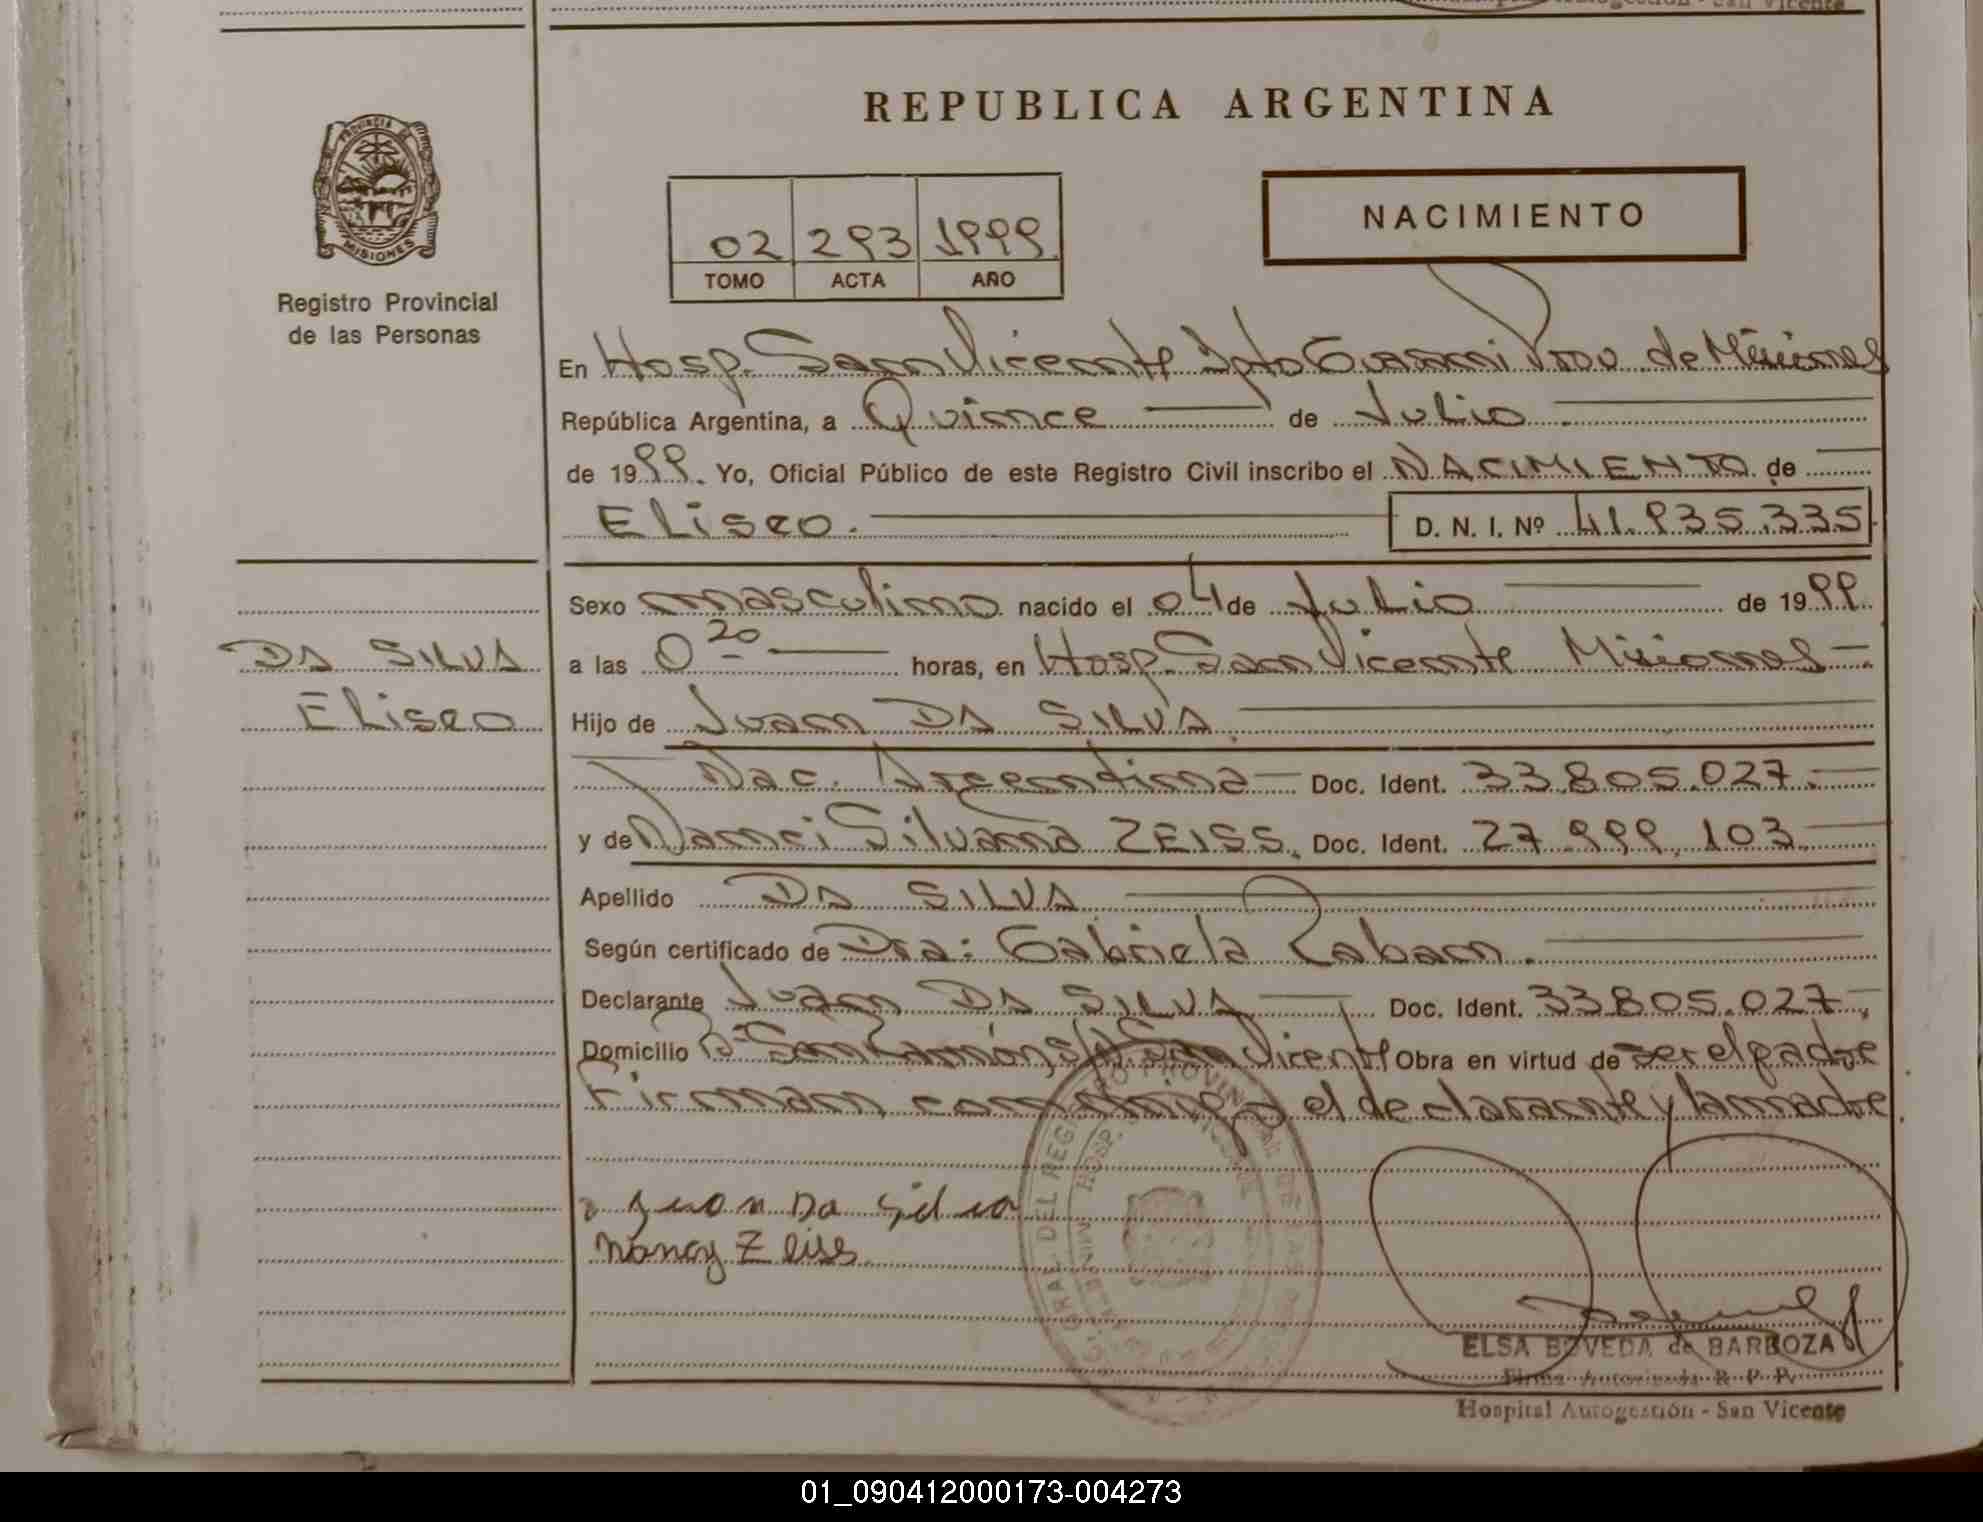 REPUBLICA ARGENTINA
PROVINCIA DE
MISIONES
Registro Provincial
de las Personas
02 293 1999
TOMO ACTA AÑO
NACIMIENTO
En Hosp. San Vicente Dpto Guarani Prov. de Misiones
República Argentina, a Quince de Julio
de 1999. Yo, Oficial Público de este Registro Civil inscribo el NACIMIENTO de
Eliseo. D. N. I. Nº 41.935.335
Sexo masculino nacido el 04 de Julio de 1999
a las 0 20 horas, en Hosp. San Vicente Misiones
DA SILVA
Eliseo
Hijo de Juan DA SILVA
Nac. Argentina Doc. Ident. 33.805.027.
y de Nanci Silvana ZEISS. Doc. Ident. 27.999.103
Apellido DA SILVA
Según certificado de Dra: Gabriela Zaban.
Declarante Juan DA SILVA Doc. Ident. 33805.027
Domicilio Bº San Ramón, San Vicente Obra en virtud de ser el padre
Firman conmigo el declarante y la madre.
Juan Da Silva
Nancy Zeiss
GRAL. DEL REGISTRO PROVINCIAL DE LAS
HOSP.
ELSA BOVEDA de BARBOZA
Firma Autorizada R. P. P.
Hospital Autogestión - San Vicente
01_090412000173-004273